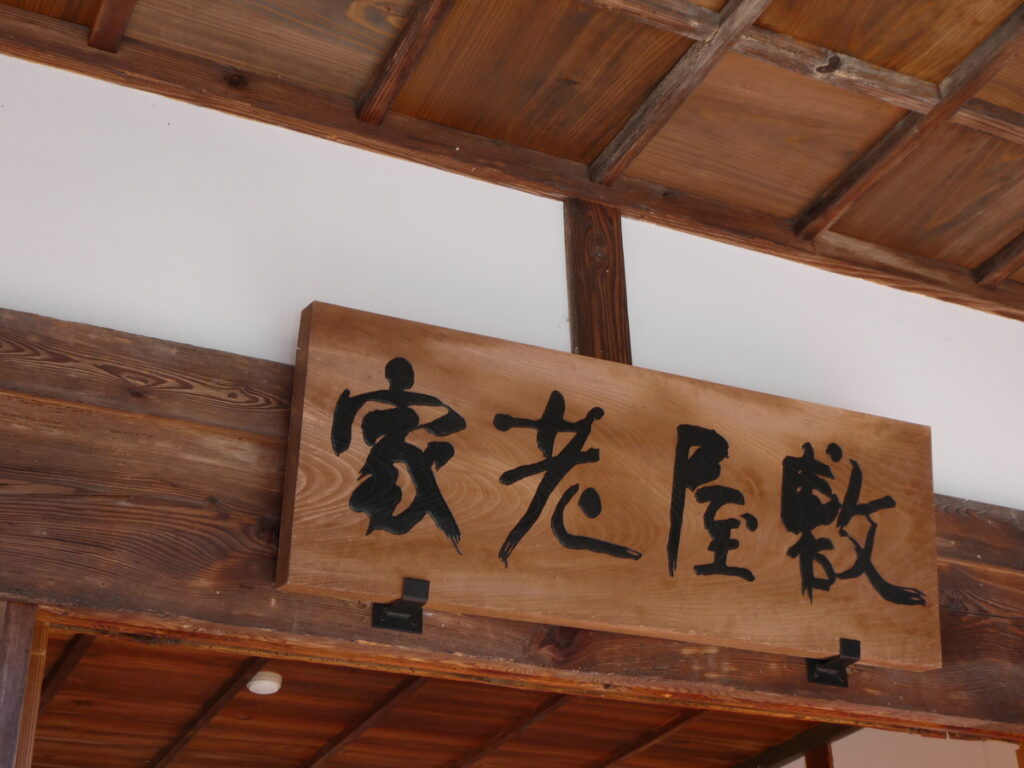 家老屋敷